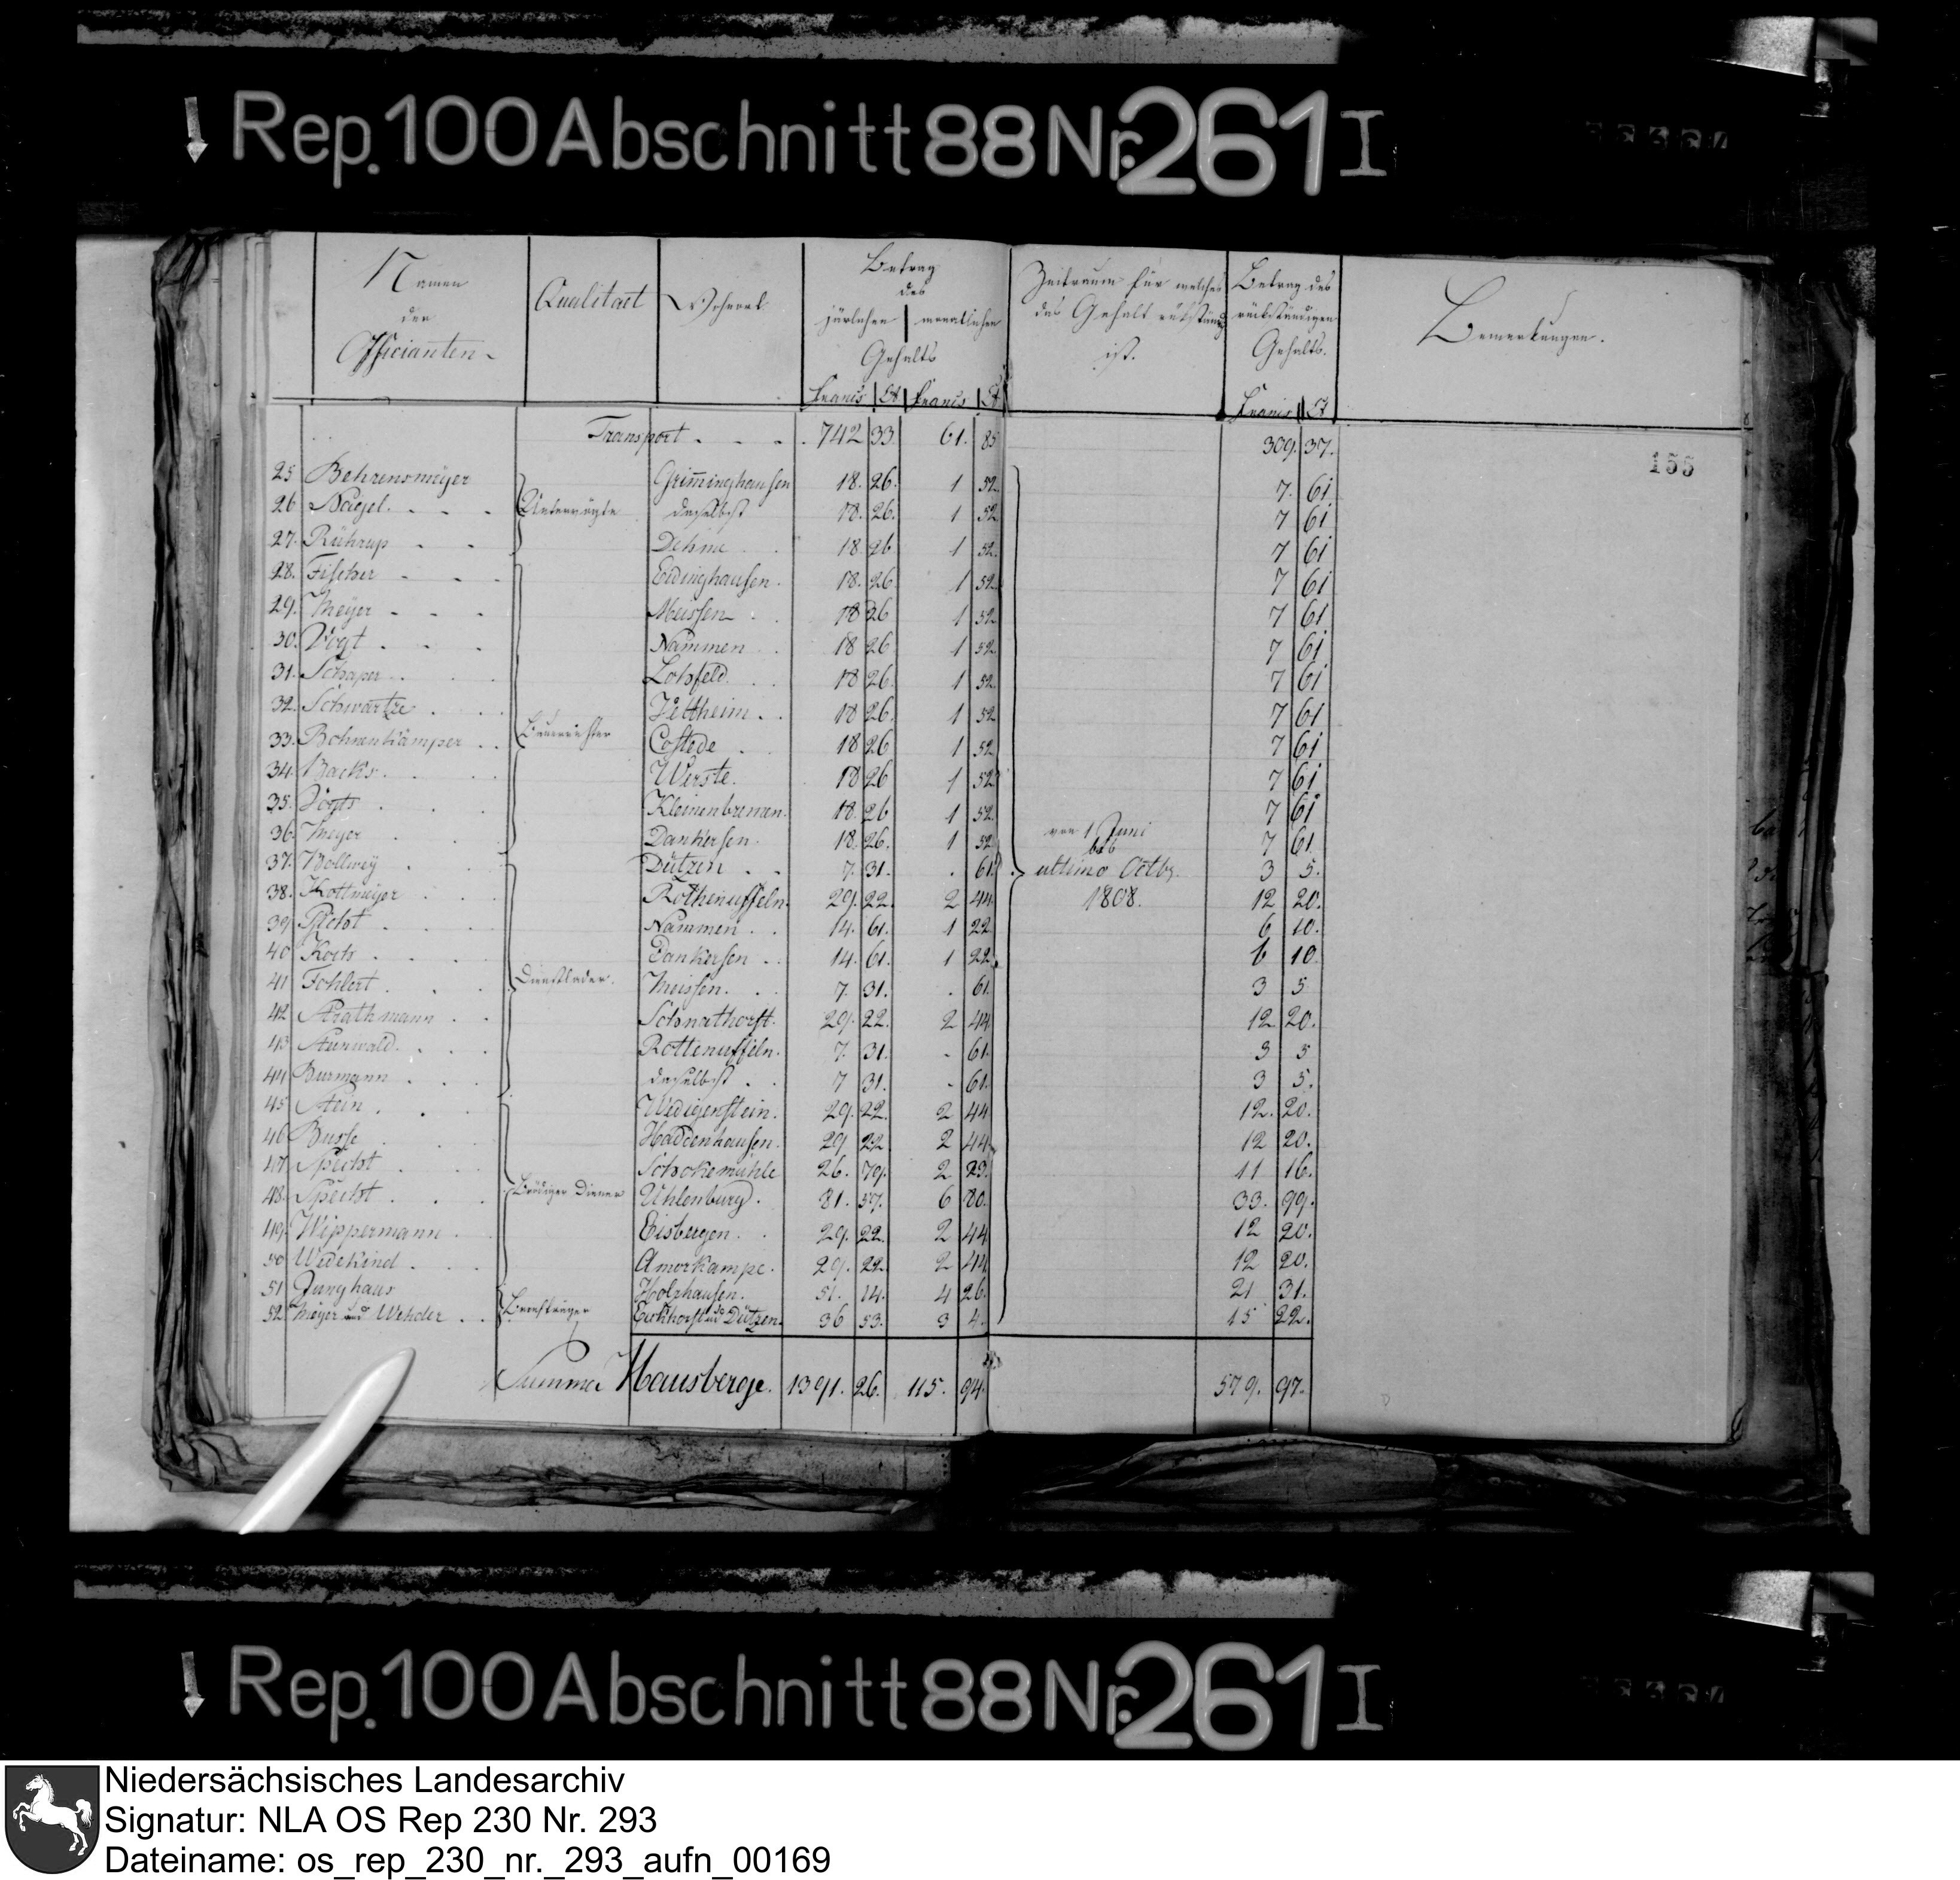 Rep. 100 Abschnitt 88 Nr. 261 I
Namen der Officianten
Qualitaet
Wohnort
Betrag des järlichen | monatlichen Gehalts
Francs | Ct | Francs | Ct
Zeitraum für welches das Gehalt rükständig ist.
Betrag des rückständigen Gehalts.
Francs | Ct
Bemerkungen.
Transport 742 33. 61. 85 309. 37.
155
25 Behrensmeyer Untervögte Grimminghausen 18. 26. 1 52. 7. 61
26 Nagel daselbst 18. 26. 1 52 7 61
27. Rührup Dehme 18 26 1 52. 7 61
28. Fischer Eidinghausen 18. 26. 1 52. 7 61
29. Meyer Meissen 18 26 1 52 7 61
30. Vogt Nammen 18 26 1 52. 7 61
31. Schaper Lohfeld 18 26. 1 52. 7 61
32. Schwartze Veltheim 18 26. 1 52 7 61
33. Bohrenkämper Bauerrichter Costede 18 26 1 52. 7 61
34. Backs Werste. 18 26 1 52 7 61
35. Vogts Kleinenbremen. 18. 26 1 52. 7 61
36. Meyer Dankersen. 18. 26. 1 52 7 61.
von 1 Juni bis ultimo Octbr. 1808.
37. Bollwey Dützen 7. 31. . 61. 3 5.
38. Kottmeyer Rothenuffeln. 29. 22. 2 44. 12 20.
39. Picht Nammen 14. 61. 1 22 6 10.
40 Koch Dankersen 14. 61. 1 22. 6 10.
41 Fohlert Dienstlader. Meissen. 7. 31. . 61. 3 5
42 Strathmann Schnathorst. 29. 22. 2 44. 12 20.
43 Sturwald. Rottenuffeln. 7. 31. - 61. 3 5
44 Burmann daselbst 7 31. - 61. 3 5.
45 Stein Wedigenstein. 29. 22. 2 44 12. 20.
46 Busse Haddenhausen. 29 22 2 44. 12 20.
47. Specht Schockemühle 26. 79. 2 23. 11 16.
48. Specht Diener Uhlenburg. 81. 57. 6 80. 33. 99.
49. Wippermann Eisbergen. 29. 22. 2 44 12 20.
50 Wedekind Amorkampe. 29. 22. 2 44 12 20.
51 Junghaus Holzhausen. 51. 14. 4 26. 21 31.
52. Meyer und Wehder Eickhorst und Dützen. 36 53. 3 4. 15 22.
Summa Hausberge. 1391. 26. 115. 94. 579. 97.
Rep. 100 Abschnitt 88 Nr. 261 I
Niedersächsisches Landesarchiv
Signatur: NLA OS Rep 230 Nr. 293
Dateiname: os_rep_230_nr._293_aufn_00169